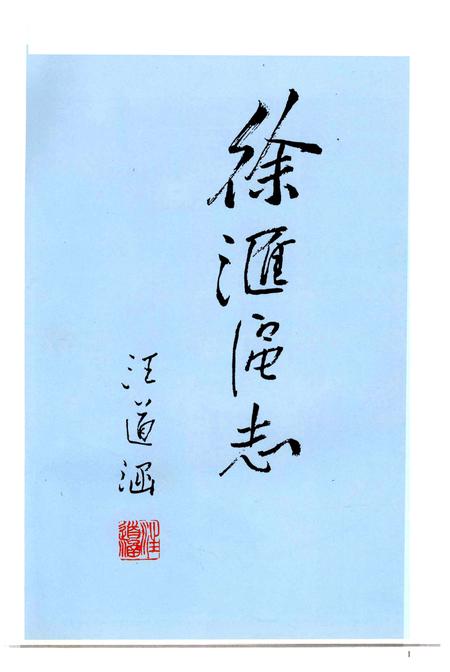 徐滙區志
汪道涵
汪道涵
1